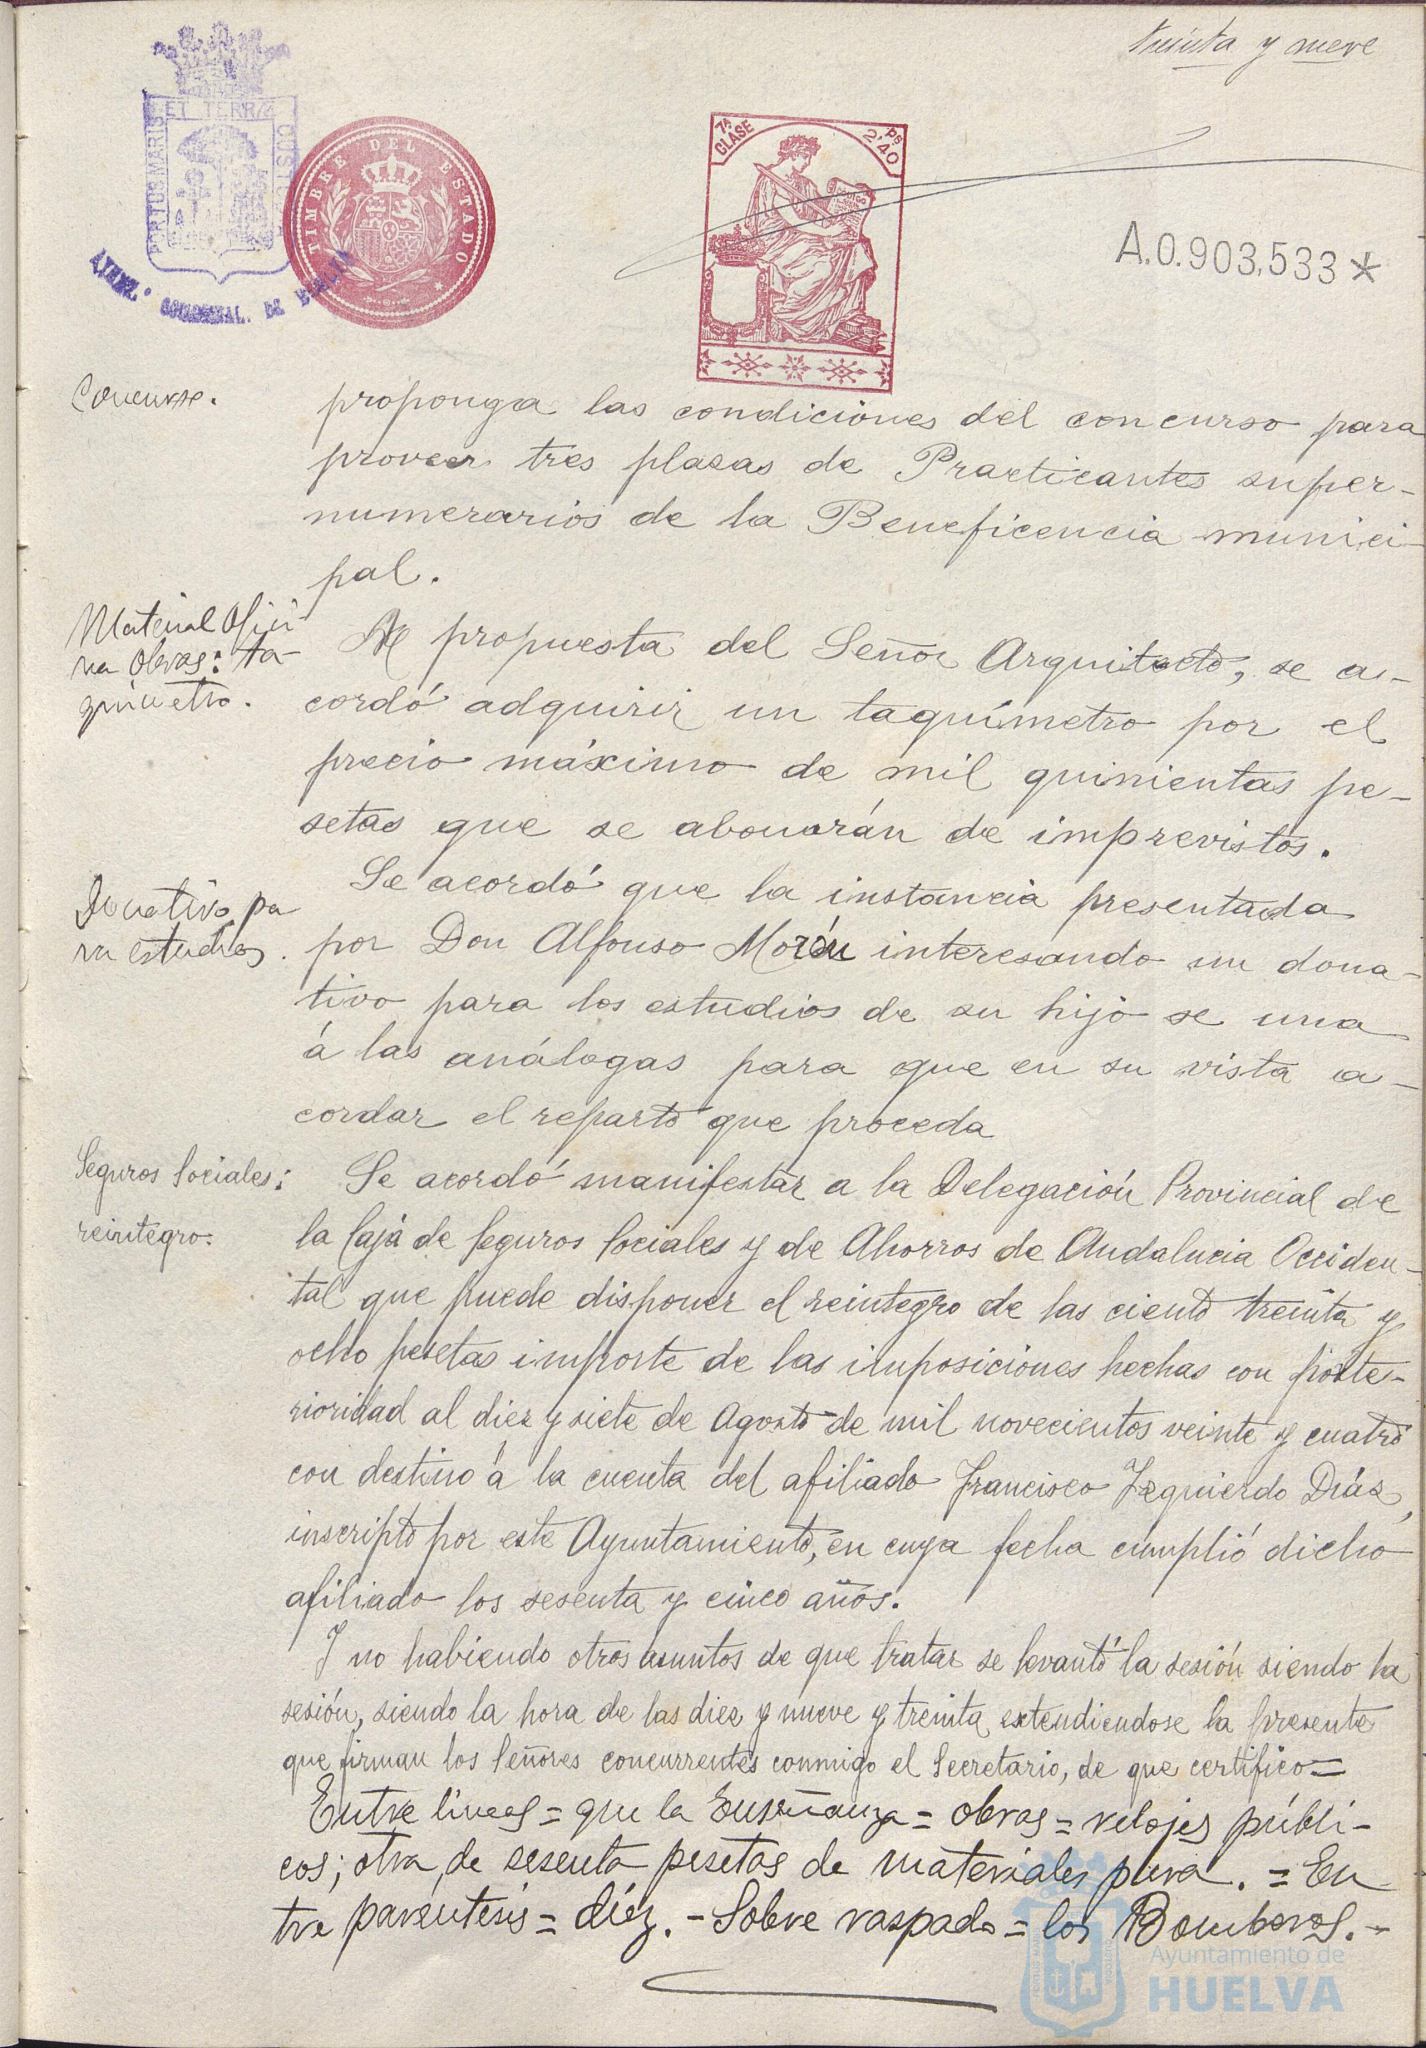 treinta y nueve
PORTUS MARIS ET TERRÆ CUSTODIA
AYUNT.º CONSTITUCIONAL. DE HUELVA
TIMBRE DEL ESTADO
7ª CLASE
2'40 PS
A.0.903,533*
Concurso.
proponga las condiciones del concurso para
proveer tres plazas de Practicantes super-
numerarios de la Beneficencia munici-
pal.
Material Ofici
na Obras: ta-
químetro.
A propuesta del Señor Arquitecto, se a-
cordó adquirir un taquímetro por el
precio máximo de mil quinientas pe-
setas que se abonarán de imprevistos.
Donativo pa
ra estudios.
Se acordó que la instancia presentada
por Don Alfonso Morón interesando un dona-
tivo para los estudios de su hijo se una
á las análogas para que en su vista a-
cordar el reparto que proceda
Seguros Sociales:
reintegro.
Se acordó manifestar a la Delegación Provincial de
la Caja de Seguros Sociales y de Ahorros de Andalucia Occiden-
tal que puede disponer el reintegro de las ciento treinta y
ocho pesetas importe de las imposiciones hechas con poste-
rioridad al diez y siete de Agosto de mil novecientos veinte y cuatro
con destino á la cuenta del afiliado Francisco Izquierdo Diáz,
inscripto por este Ayuntamiento, en cuya fecha cumplió dicho
afiliado los sesenta y cinco años.
Y no habiendo otros asuntos de que tratar se levantó la sesión siendo la
sesión, siendo la hora de las diez y nueve y treinta extendiendose la presente
que firman los Señores concurrentes conmigo el Secretario, de que certifico=
Entre lineas = que la Enseñanza = obras = relojes públi-
cos; otra, de sesenta pesetas de materiales para. = En
tre paréntesis = diéz. - Sobre raspado = los Bomberos.-
Ayuntamiento de
HUELVA